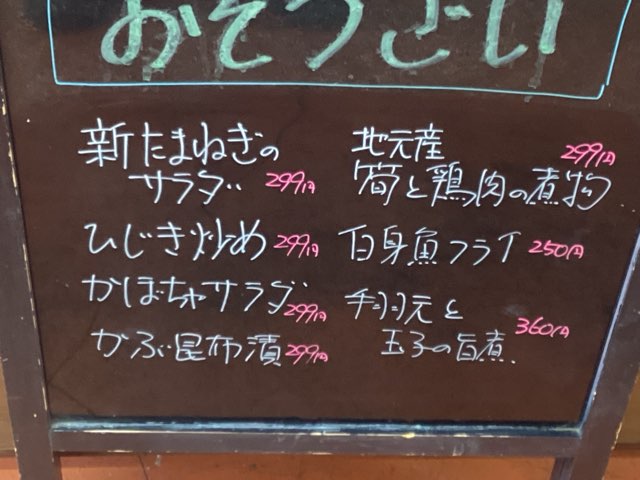 おそうざい
新たまねぎの
サラダ 299円
ひじき炒め 299円
かぼちゃサラダ 299円
かぶ昆布漬 299円
地元産 299円
筍と鶏肉の煮物
白身魚フライ 250円
手羽元と
玉子の旨煮 360円